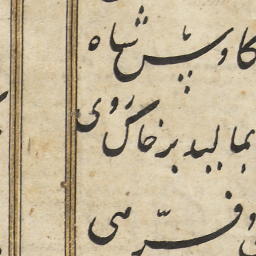 کاوس شاه
بمالید بر خاک روی
و فرّ مهی